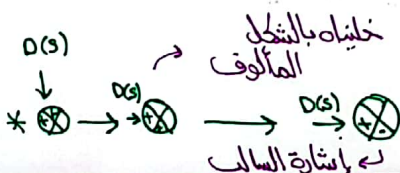 خليناه بالشكل
المألوف
D(s)
D(s)
D(s)
* + + → + + → + -
إشارة السالب